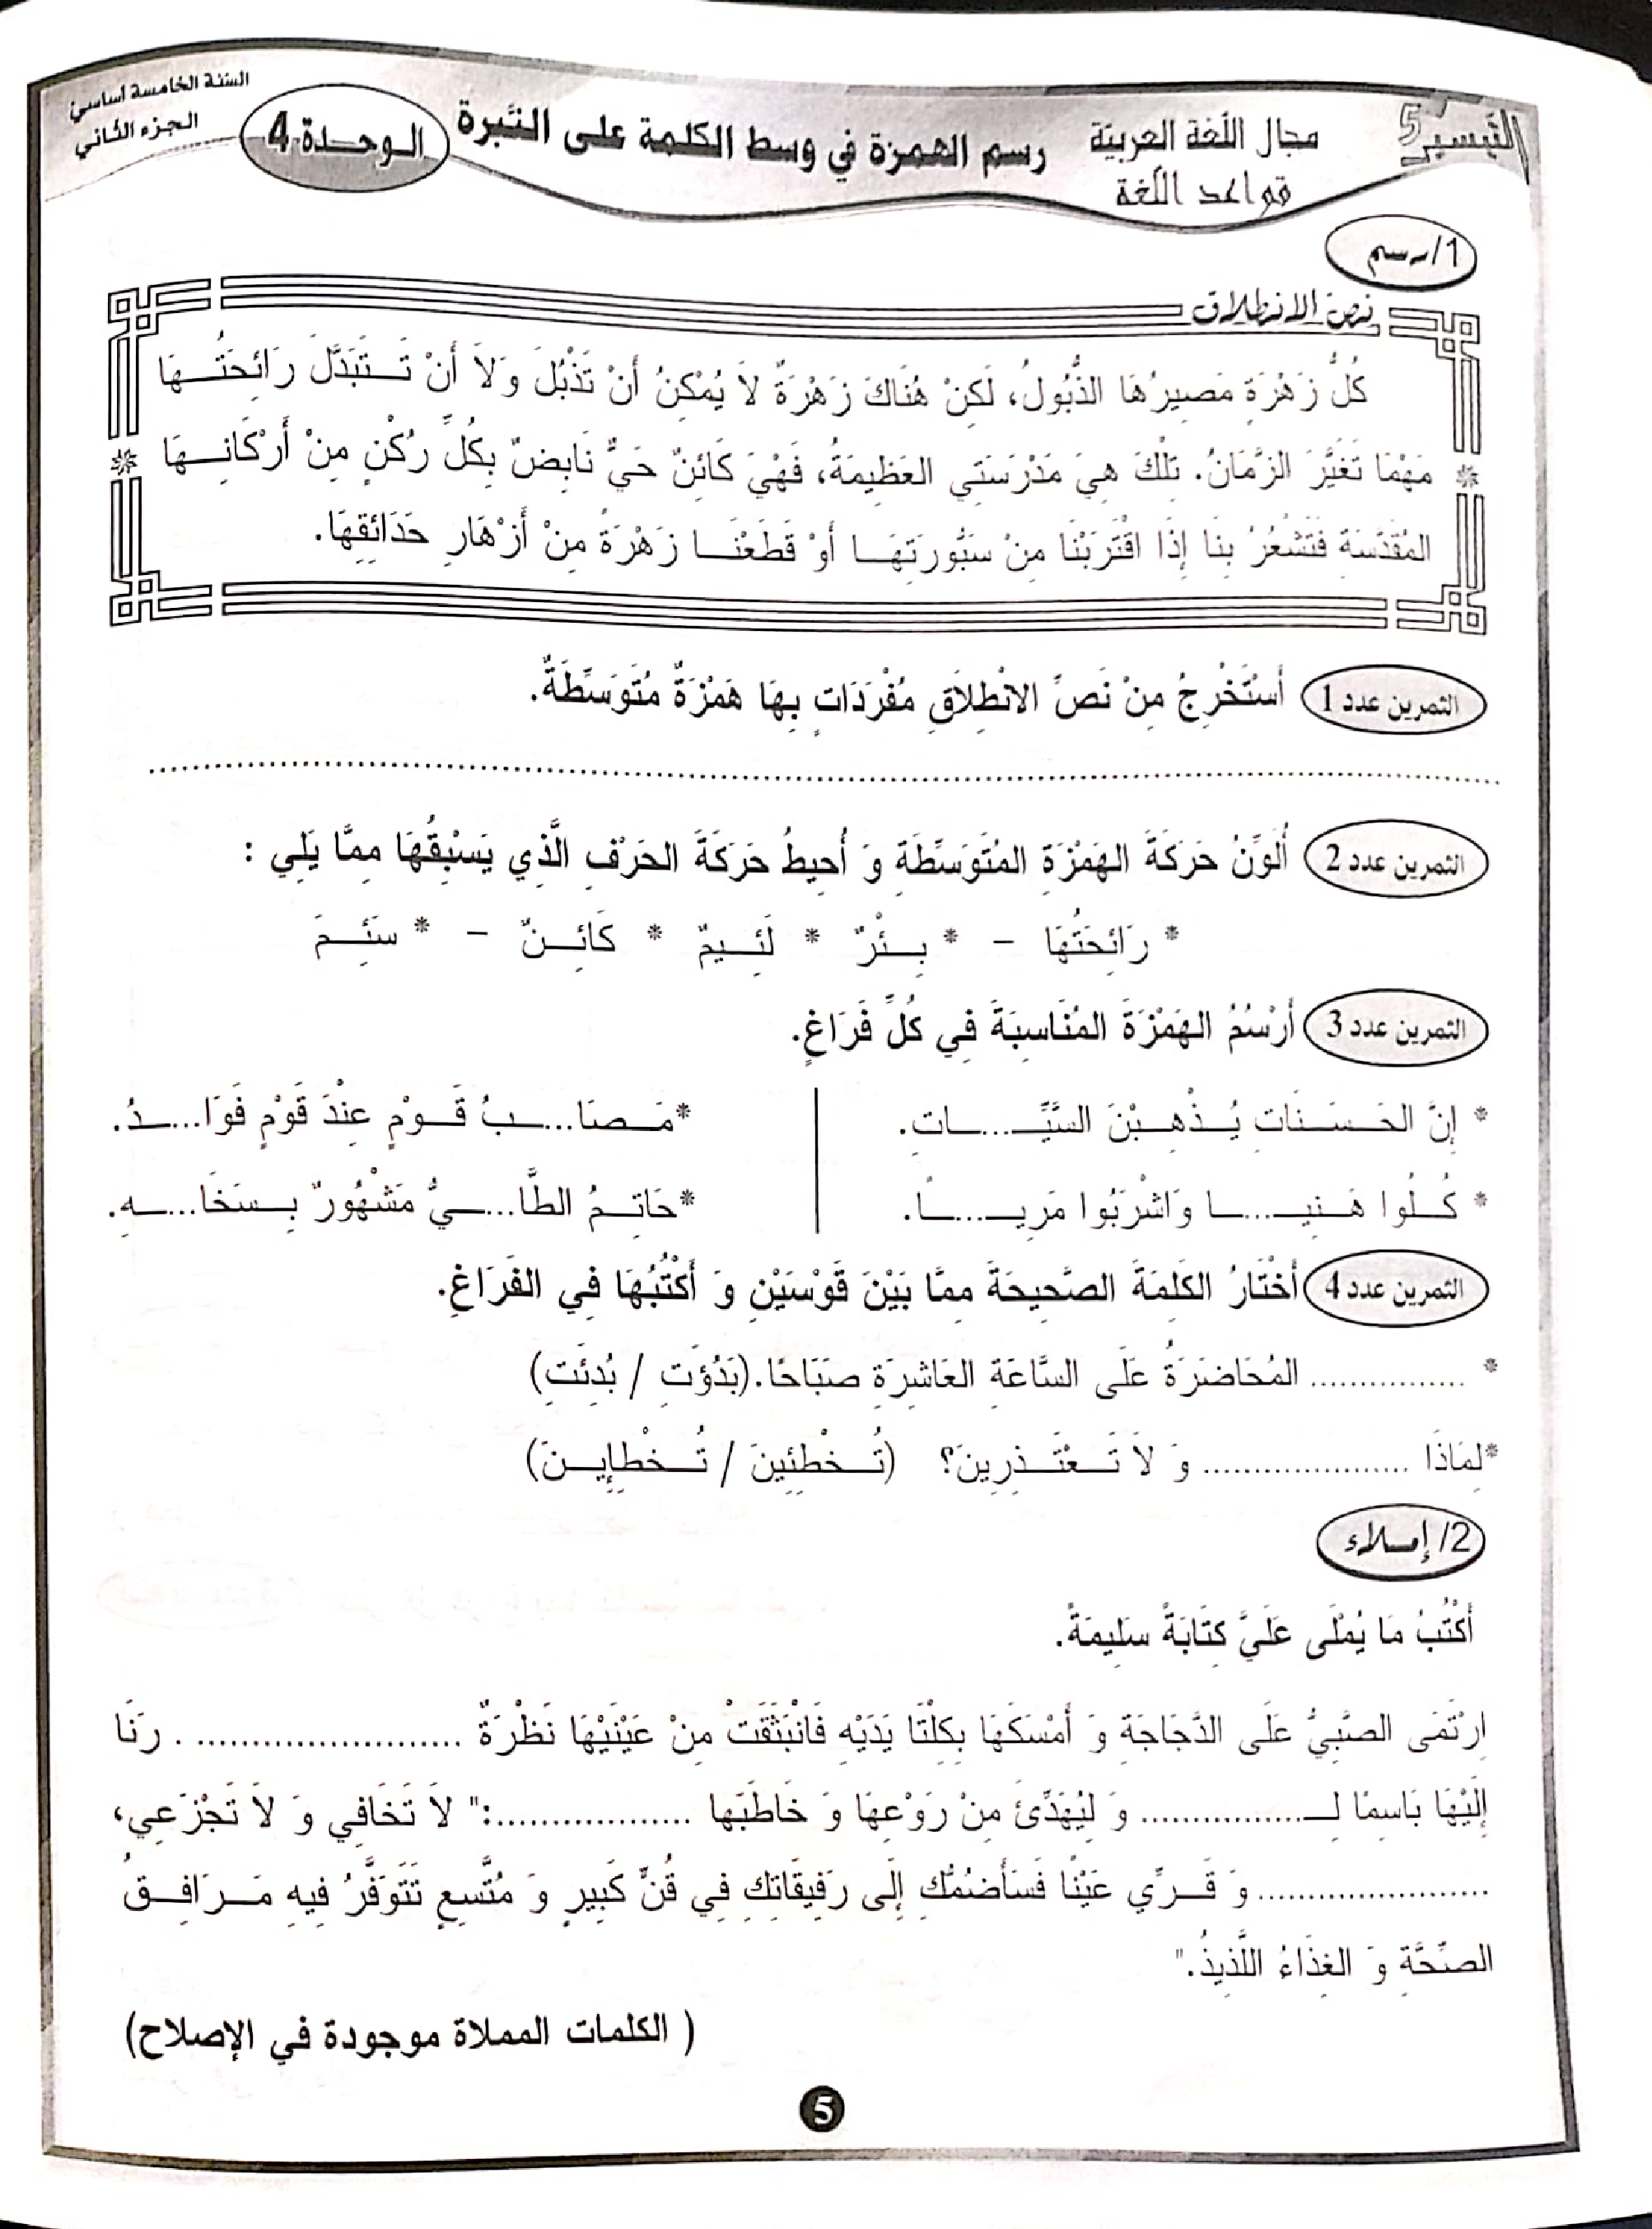 التيسير 5
مجال اللغة العربية
قواعد اللغة
رسم الهمزة في وسط الكلمة على النّبرة
الوحدة 4
السنة الخامسة أساسي
الجزء الثاني
1/رسم
نص الانطلاق
كُلُّ زَهْرَةٍ مَصِيرُهَا الذُّبُولُ، لَكِنْ هُنَاكَ زَهْرَةٌ لاَ يُمْكِنُ أَنْ تَذْبُلَ وَلاَ أَنْ تَــتَبَدَّلَ رَائِحَتُـــهَا
مَهْمَا تَغَيَّرَ الزَّمَانُ. تِلْكَ هِيَ مَدْرَسَتِي العَظِيمَةُ، فَهْيَ كَائِنٌ حَيٌّ نَابِضٌ بِكُلِّ رُكْنٍ مِنْ أَرْكَانِـــهَا
المُقَدَّسَةِ فَتَشْعُرُ بِنَا إِذَا اقْتَرَبْنَا مِنْ سَبُّورَتِهَـــا أَوْ قَطَعْنَـــا زَهْرَةً مِنْ أَزْهَارِ حَدَائِقِهَا.
التمرين عدد 1 أَسْتَخْرِجُ مِنْ نَصِّ الانْطِلاَقِ مُفْرَدَاتٍ بِهَا هَمْزَةٌ مُتَوَسِّطَةٌ.
التمرين عدد 2 أُلَوِّنُ حَرَكَةَ الهَمْزَةِ المُتَوَسِّطَةِ وَ أُحِيطُ حَرَكَةَ الحَرْفِ الَّذِي يَسْبِقُهَا مِمَّا يَلِي :
* رَائِحَتُهَا - * بِــئْرٌ * لَئِــيمٌ * كَائِــنٌ - * سَئِــمَ
التمرين عدد 3 أَرْسُمُ الهَمْزَةَ المُنَاسِبَةَ فِي كُلِّ فَرَاغٍ.
* إِنَّ الحَـسَـنَاتِ يُــذْهِــبْنَ السَّيِّــ.....ــاتِ. *مَــصَا.....ــبُ قَــوْمٍ عِنْدَ قَوْمٍ فَوَا.....ــدُ.
* كُــلُوا هَـنِيـ.....ــا وَاشْرَبُوا مَرِيــ.....ــًا. *حَاتِــمُ الطَّا.....ــيُّ مَشْهُورٌ بِــسَخَا.....ــهِ.
التمرين عدد 4 أَخْتَارُ الكَلِمَةَ الصَّحِيحَةَ مِمَّا بَيْنَ قَوْسَيْنِ وَ أَكْتُبُهَا فِي الفَرَاغِ.
* ................ المُحَاضَرَةُ عَلَى السَّاعَةِ العَاشِرَةِ صَبَاحًا.(بَدُؤَتِ / بُدِئَتِ)
*لِمَاذَا ..................... وَ لاَ تَــعْتَــذِرِينَ؟ (تُــخْطِئِينَ / تُــخْطِإِيــنَ)
2/ إملاء
أَكْتُبُ مَا يُمْلَى عَلَيَّ كِتَابَةً سَلِيمَةً.
اِرْتَمَى الصَّبِيُّ عَلَى الدَّجَاجَةِ وَ أَمْسَكَهَا بِكِلْتَا يَدَيْهِ فَانْبَثَقَتْ مِنْ عَيْنَيْهَا نَظْرَةٌ ........................ . رَنَا
إِلَيْهَا بَاسِمًا لِــ.................... وَ لِيُهَدِّئَ مِنْ رَوْعِهَا وَ خَاطَبَها ...................:" لاَ تَخَافِي وَ لاَ تَجْزَعِي،
....................... وَ قَــرِّي عَيْنًا فَسَأَضُمُّكِ إِلَى رَفِيقَاتِكِ فِي قُنٍّ كَبِيرٍ وَ مُتَّسِعٍ تَتَوَفَّرُ فِيهِ مَــرَافِــقُ
الصِّحَّةِ وَ الغِذَاءُ اللَّذِيذُ."
( الكلمات المملاة موجودة في الإصلاح)
5